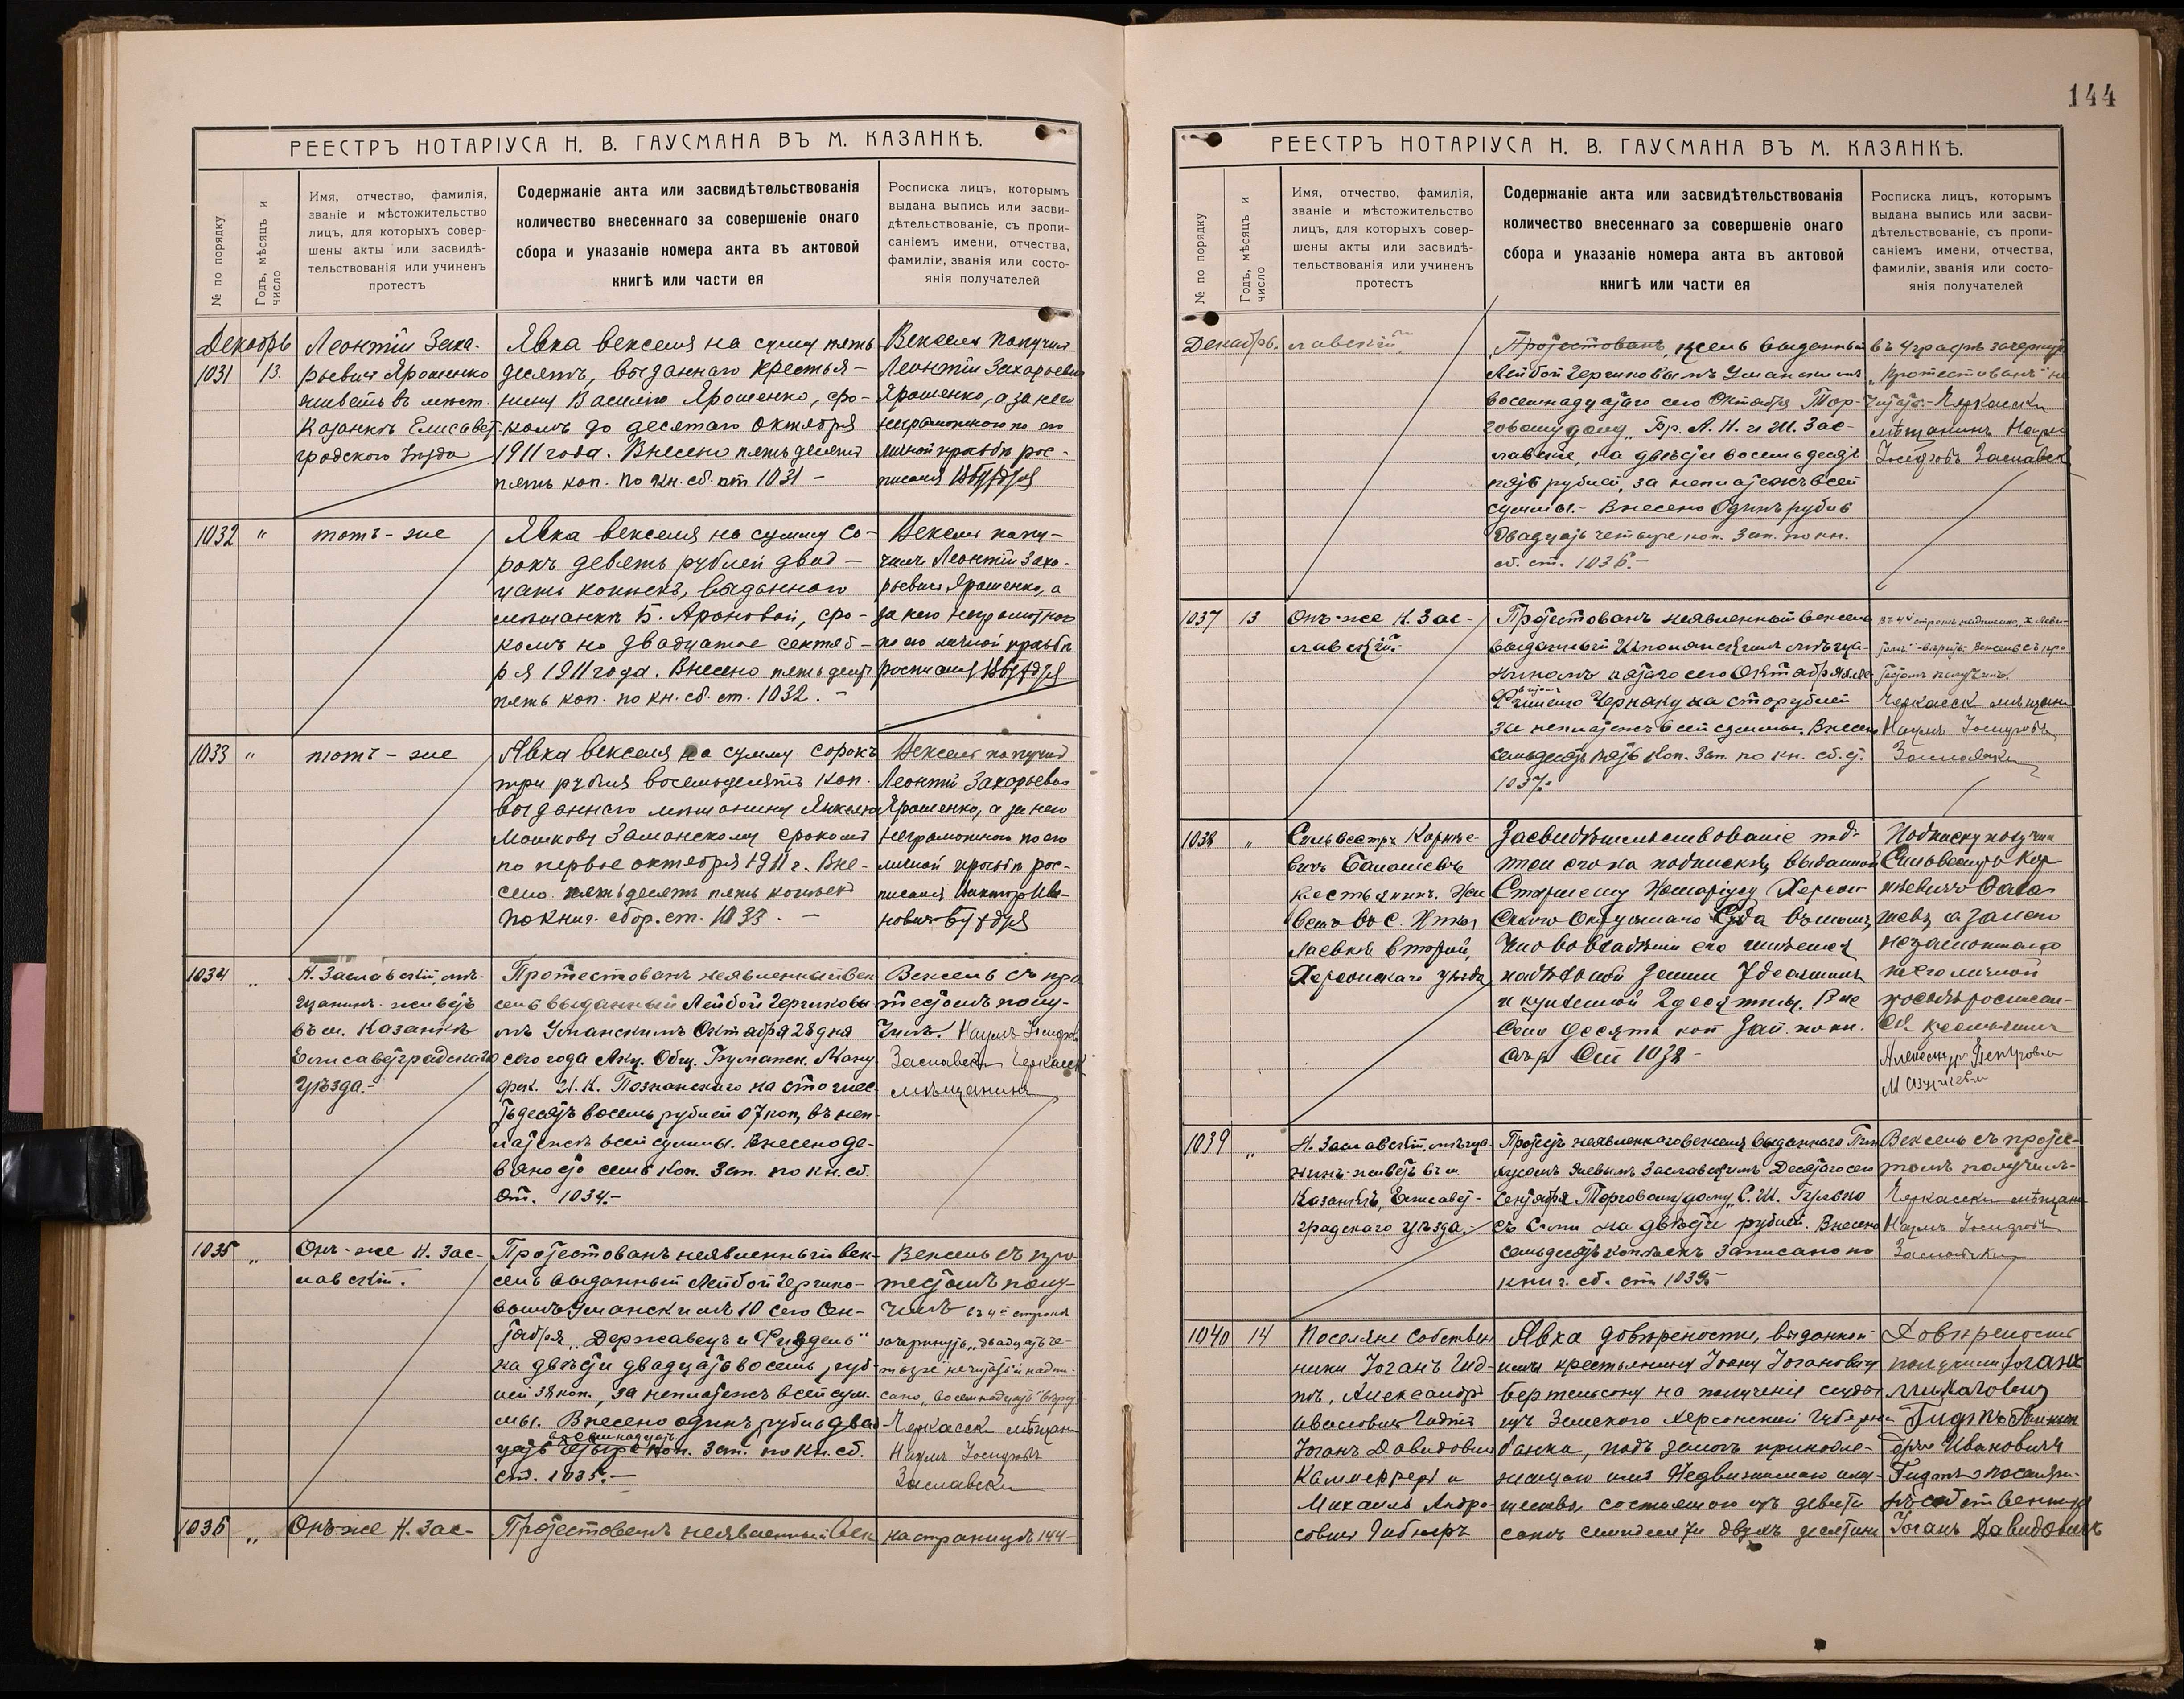 РЕЕСТРЪ НОТАРІУСА Н. В. ГАУСМАНА ВЪ М. КАЗАНКѢ.
№ по порядку
Годъ, мѣсяцъ и число
Имя, отчество, фамилія,
званіе и мѣстожительство
лицъ, для которыхъ совер-
шены акты или засвидѣ-
тельствованія или учиненъ
протестъ
Содержаніе акта или засвидѣтельствованія
количество внесеннаго за совершеніе онаго
сбора и указаніе номера акта въ актовой
книгѣ или части ея
Росписка лицъ, которымъ
выдана выпись или засви-
дѣтельствованіе, съ пропи-
саніемъ имени, отчества,
фамиліи, званія или состо-
янія получателей
Декабрь
1031 13.
Леонтій Заха-
рьевич Ярошенко
живетъ въ мест.
Казанкѣ Елисавет-
градскаго уѣзда
Явка векселя на сумму пять
десятъ, выданнаго крестья-
нину Василію Ярошенко, сро-
комъ до десятаго октября
1911 года. Внесено пятьдесят
пять коп. по кн. сб. ст. 1031 -
Вексель получил
Леонтій Захарьевич
Ярошенко, а за него
неграмотного по его
личной просьбѣ рос-
писался
1032 "
тотъ-же
Явка векселя на сумму со-
рокъ девять рублей двад-
цать копѣекъ, выданнаго
мѣщанкѣ Б. Ароновой, сро-
комъ на двадцатое сентяб-
ря 1911 года. Внесено пятьдесят
пять коп. по кн. сб. ст. 1032. -
Вексель полу-
чилъ Леонтій Заха-
рьевич Ярошенко, а
за него неграмотного
по его личной просьбѣ
росписался
1033 "
тотъ-же
Явка векселя на сумму сорокъ
три рубля восемьдесятъ коп.
выданнаго мещанину Янкелю
Мошкову Заманскому сроком
по первое октября 1911 г. Вне-
сено пятьдесятъ пять копеек
по книг. сбор. ст. 1033. -
Вексель получил
Леонтій Захарьевич
Ярошенко, а за него
неграмотного по его
личной просьбѣ рос-
писался Виктор Ива-
нович
1034 "
Н. Заславскій, мѣ-
щанинъ живетъ
въ м. Казанкѣ
Елисаветградскаго
уѣзда.-
Протестованъ неявленный век
сель выданный Лейбой Герчиковы
мъ Уманскимъ Октября 28 дня
сего года Акц. Общ. Бумажн. Ману
фак. И. К. Познанскаго на сто шес
тьдесятъ восемь рублей 07 коп, въ неп
латежъ всей суммы. Внесено де-
вяносто семь коп. Зап. по кн. сб.
ст. 1034.-
Вексель съ про
тестомъ полу-
чилъ. Наумъ Іосифов
Заславскій Черкасск
мѣщанинъ
1035 "
Онъ-же Н. Зас-
лавскій.
Протестованъ неявленный век-
сель выданный Лейбой Герчико-
вымъ Уманскимъ 10 сего Сен-
тября „Державецъ и Фридель"
на двѣсти двадцать восемь руб-
лей 38 коп., за неплатежъ всей сум-
мы. Внесено одинъ рубль двад-
восемнадцать
цать четыре коп. Зап. по кн. сб.
ст. 1035.-
Вексель съ про-
тестомъ полу-
чилъ въ 4й строкѣ
зачеркнутъ „двадцать че-
тыре" не читать и надпи-
сано „восемнадцать" вѣрить
Черкасск мѣщан
Наумъ Іосифовъ
Заславски
1036 "
Онъ-же Н. Зас-
Протестованъ неявленный век
на страницѣ 144
144
РЕЕСТРЪ НОТАРІУСА Н. В. ГАУСМАНА ВЪ М. КАЗАНКѢ.
№ по порядку
Годъ, мѣсяцъ и число
Имя, отчество, фамилія,
званіе и мѣстожительство
лицъ, для которыхъ совер-
шены акты или засвидѣ-
тельствованія или учиненъ
протестъ
Содержаніе акта или засвидѣтельствованія
количество внесеннаго за совершеніе онаго
сбора и указаніе номера акта въ актовой
книгѣ или части ея
Росписка лицъ, которымъ
выдана выпись или засви-
дѣтельствованіе, съ пропи-
саніемъ имени, отчества,
фамиліи, званія или состо-
янія получателей
Декабрь.
лавскій.
Протестованъ, ксель выданный
Лейбой Герчиковымъ Уманскимъ
восемнадцатаго сего Октября Тор-
говому дому „Бр. А. Н. и М. Зас-
лавскіе, на двѣсти восемьдесятъ
пять рублей, за неплатежъ всей
суммы.- Внесено Одинъ рубль
двадцать четыре коп. Зап. по кн.
сб. ст. 1036.-
въ 4 графѣ зачеркнут
„протестованъ" не
читать.- Черкасски
мѣщанинъ Наум
Іосифовъ Заславск
1037 13
Онъ-же Н. Зас-
лавскій.
Протестованъ неявленный вексель
выданный Шполянскимъ мѣща-
ниномъ пятаго сего Октября
Черняку на сто рублей
за неплатежъ всей суммы. Внесено
семьдесятъ пять коп. Зап. по кн. сб. ст.
1037.-
въ 4й строкѣ надписано
вѣрить. Вексель съ про
тестомъ получилъ.
Черкасск мѣщани
Наумъ Іосифовъ
Заславски
1038 "
Сильвестръ Корнѣе-
вичъ Балашевъ
крестьянинъ. Жи
ветъ во с.
лаевкѣ второй,
Херсонскаго уѣзда
Засвидѣтельствованіе под-
писи его на подпискѣ, выданной
Старшему Нотаріусу Херсон
скаго Окружнаго Суда въ томъ,
что во владѣніи его имѣется
надѣльной земли 7 десятинъ
и купленной 2 десятины. Вне
сено десять коп Зап. по кн.
сбор Ст 1038 -
Подписку получил
Сильвестръ Кор
нѣевичъ Бала
шевъ а за него
неграмотнаго
по его личной
просьбѣ росписал-
ся крестьянин
Александръ Петрович
1039 "
Н. Заславскій, мѣща-
нинъ живетъ въ м.
Казанкѣ, Елисавет-
градскаго уѣзда.-
Протестъ неявленнаго векселя выданнаго
Заславскимъ Десятаго сего
Сентября Торговому дому „С. Ш. Гулько
съ С-ми на двѣсти рублей. Внесено
семьдесятъ копѣекъ записано по
книг. сб. ст. 1039.-
Вексель съ протес-
томъ получилъ-
Черкасски мѣщани
Наумъ Іосифовъ
Заславски
1040 14
Поселяне собствен
ники Іоганъ Гид-
тъ, Александръ
Камперъ и
Михаилъ Андре-
Явка довѣрености, выданной
ими крестьянину Ивану Іогановичу
Бертельсону на полученіе ссуды
изъ Земскаго Херсонской Губерніи
банка, подъ залогъ принадле-
жащаго имъ Недвижимаго иму-
щества, состоящаго изъ девяти
сотъ семидесяти двухъ десятинъ
Довѣреность
получили Іоганъ
Ивановичъ
Іоганъ Давидовичъ